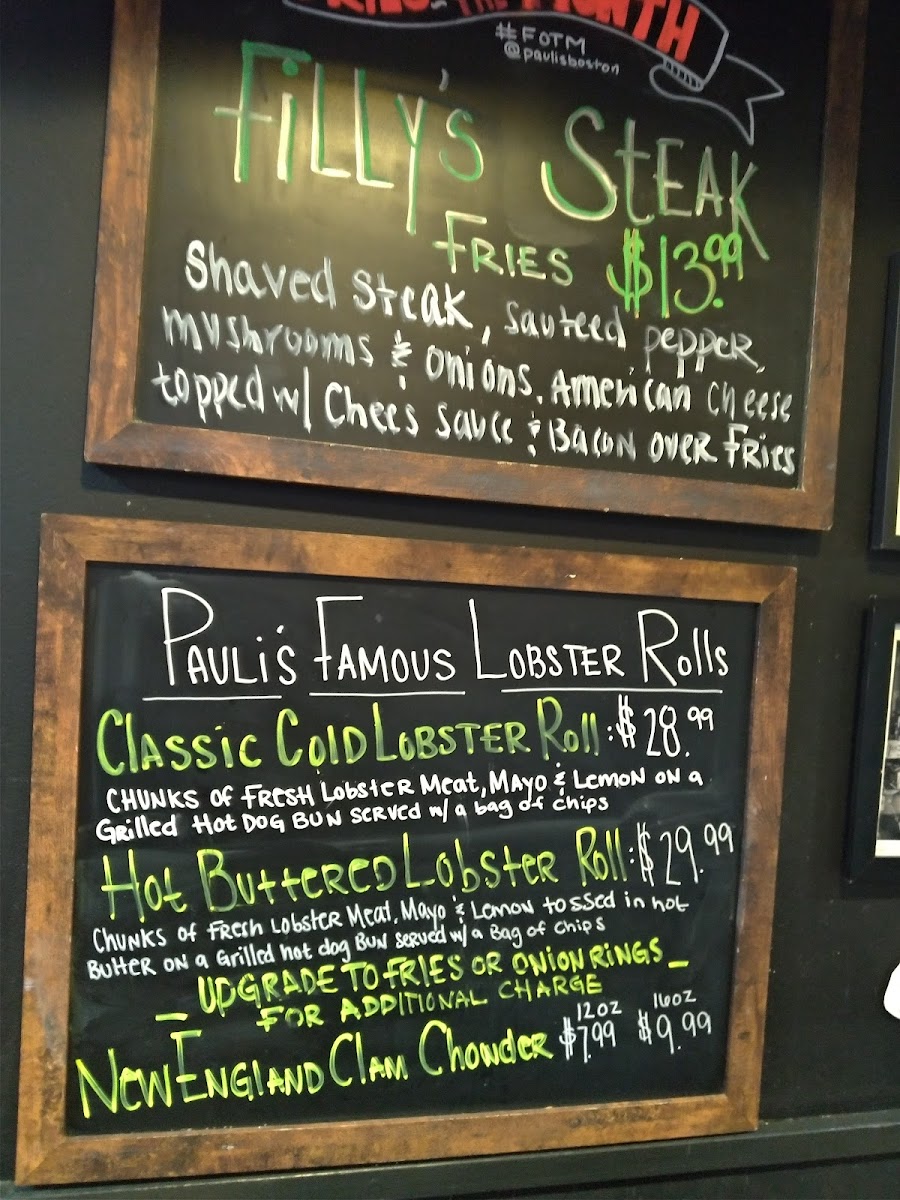 THE MONTH
#FOTM
@paulisboston
FiLLY'S STEAK
FRIES $13.99
Shaved Steak, sauteed pepper,
mushrooms & onions, American cheese
topped w/ Chees sauce & Bacon over Fries
PAULi's FAMOUS LOBSTER Rolls
Classic Cold LOBSTER Roll: $28.99
CHUNKS of FRESH LobsteR Meat, MAYO & LEMON ON a
GRilled HOT DOG BUN SERVED w/a bag of chips
Hot BUTTERED Lobster Roll: $29.99
CHUNKS of FResh Lobster Meat, Mayo & Lemon tossed in hot
BUTTER ON a GRilled hot dog BUN served w/a Bag of chips
_ UPGRADE TO FRIES OR ONION RINGS _
FOR ADDITIONAL CHARGE
12oz 16oz
NEW ENGLAND Clam Chowder $7.99 $9.99